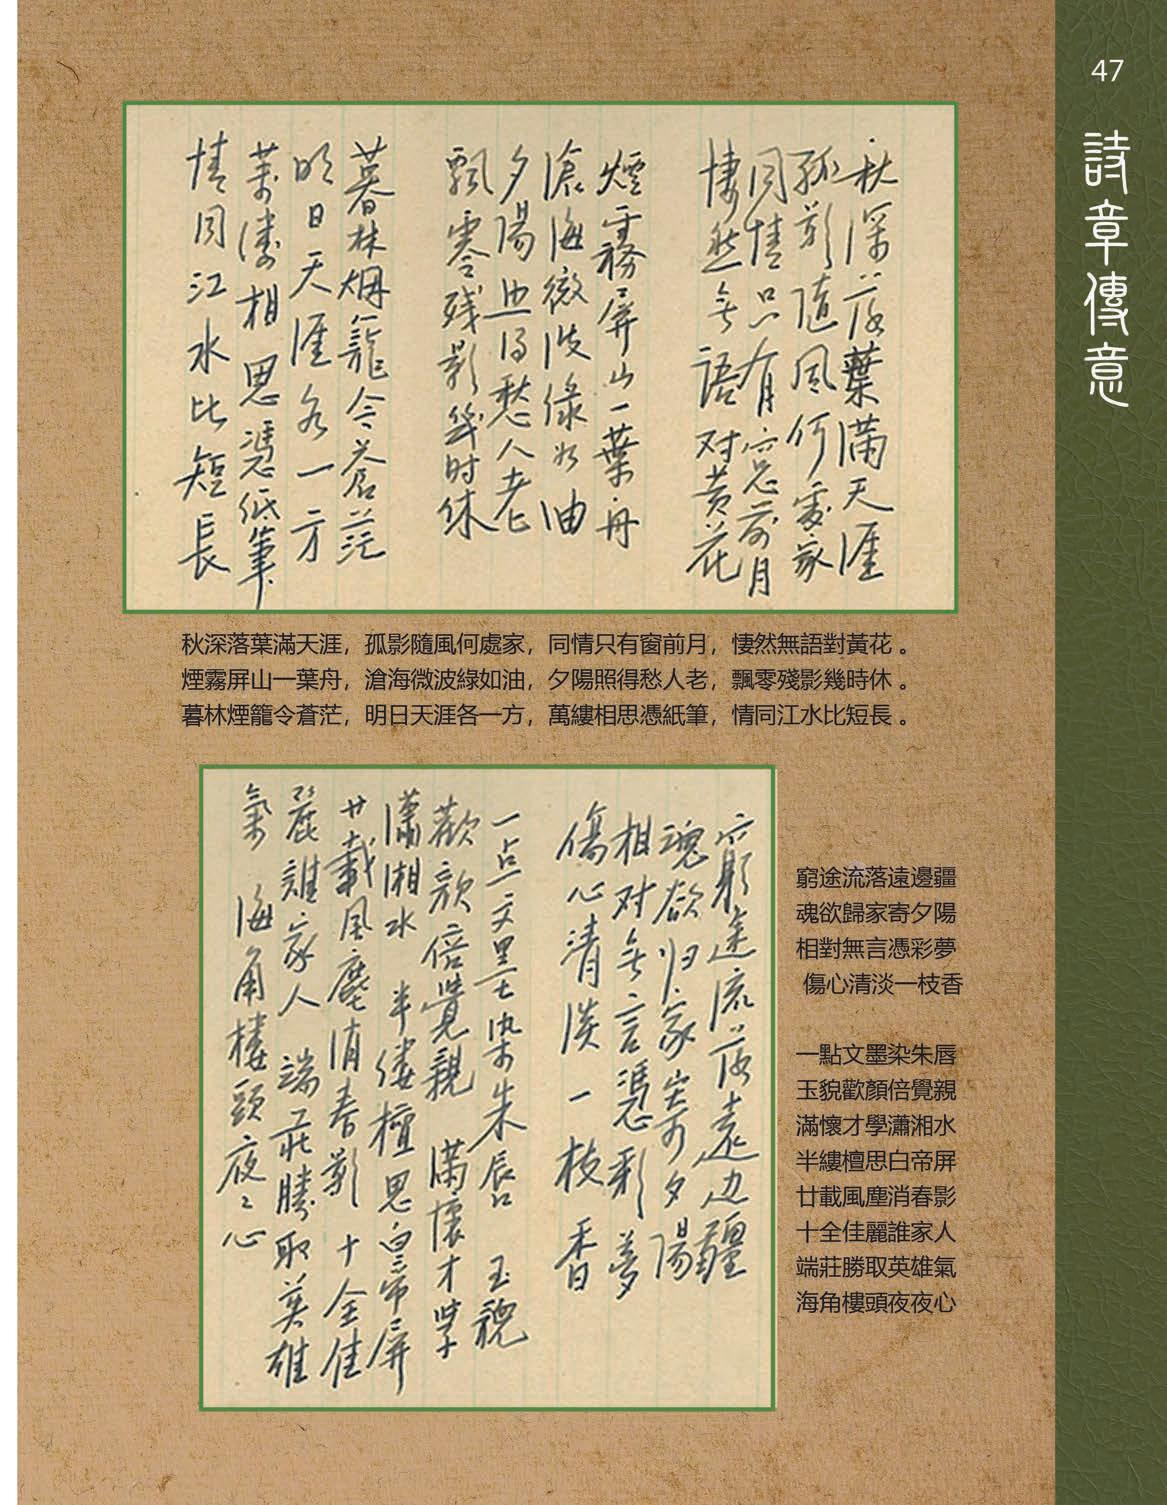 47
詩章傳意
秋深落葉滿天涯
孤影隨風何處家
同情只有窗前月
悽然無語对黃花
煙霧屏山一葉舟
滄海微波綠如油
夕陽照得愁人老
飄零残影幾时休
暮林烟籠令蒼茫
明日天涯各一方
萬縷相思憑紙筆
情同江水比短長
秋深落葉滿天涯，孤影隨風何處家，同情只有窗前月，悽然無語對黃花。
煙霧屏山一葉舟，滄海微波綠如油，夕陽照得愁人老，飄零殘影幾時休。
暮林煙籠令蒼茫，明日天涯各一方，萬縷相思憑紙筆，情同江水比短長。
窮途流落遠边疆
魂欲归家寄夕陽
相对無言憑彩夢
傷心清淡一枝香
一点文墨染朱唇 玉貌
歡顏倍覺親 滿懷才學
瀟湘水 半縷檀思白帝屏
廿載風塵消春影 十全佳
麗誰家人 端莊勝取英雄
氣 海角樓頭夜夜心
窮途流落遠邊疆
魂欲歸家寄夕陽
相對無言憑彩夢
傷心清淡一枝香
一點文墨染朱唇
玉貌歡顏倍覺親
滿懷才學瀟湘水
半縷檀思白帝屏
廿載風塵消春影
十全佳麗誰家人
端莊勝取英雄氣
海角樓頭夜夜心